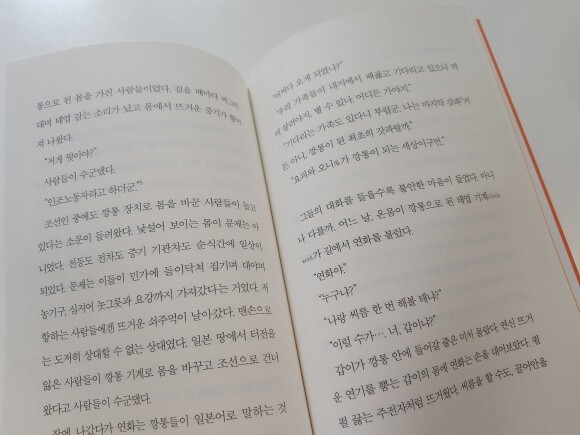 통으로 된 몸을 가진 사람들이었다. 걸을 때마다
대며 태엽 감는 소리가 났고 몸에서 뜨거운 증기가 뿜어
져 나왔다.
"저게 뭣이야?"
사람들이 수군댔다.
"인조노동자라고 하더군."
조선인 중에도 깡통 장치로 몸을 바꾼 사람들이 늘고
있다는 소문이 들려왔다. 낯설어 보이는 몸이 문제는 아
니었다. 전등도 전차도 증기 기관차도 순식간에 일상이
되었다. 문제는 이들이 민가에 들이닥쳐 집기며 대야며
농기구, 심지어 놋그릇과 요강까지 가져갔다는 거였다. 저
항하는 사람들에겐 뜨거운 쇠주먹이 날아갔다. 맨손으로
는 도저히 상대할 수 없는 상대였다. 일본 땅에서 터전을
잃은 사람들이 깡통 기계로 몸을 바꾸고 조선으로 건너
왔다고 사람들이 수군댔다.
장에 나갔다가 연화는 깡통들이 일본어로 말하는 것
"어쩌다 오게 되었나?"
"우리 가족들이 내지에서 배곯고 기다리고 있으니 먹
여 살려야지. 별 수 있나. 어디든 가야지."
"기다리는 가족도 있다니 부럽군. 나는 마지막 갓파
든 아닌, 깡통이 된 최초의 갓파랄까."
"요괴와 오니가 깡통이 되는 세상이구먼."
그들의 대화를 들을수록 불안한 마음이 들었다. 아니
나 다를까, 어느 날, 온몸이 깡통으로 된 태엽 기계
가 길에서 연화를 불렀다.
"연화야."
"누구냐?"
"나랑 씨름 한 번 해볼 테냐?"
"이럴 수가…. 너, 갑이냐?"
갑이가 깡통 안에 들어갈 줄은 미처 몰랐다. 연신 뜨거
운 연기를 뿜는 갑이의 몸에 연화는 손을 대어보았다. 펄
펄 끓는 주전자처럼 뜨거웠다. 씨름을 할 수도, 끌어안을